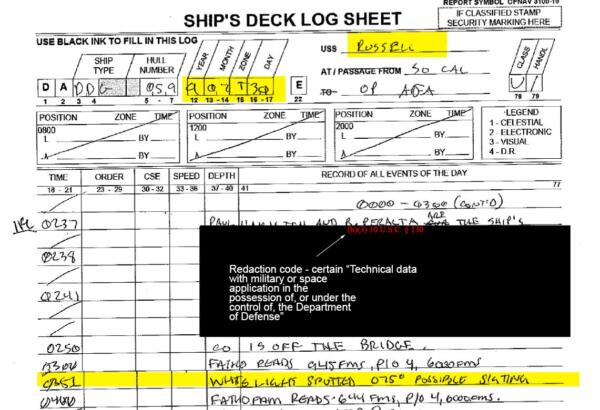 REPORT SYMBOL OPNAV 3100-10
IF CLASSIFIED STAMP
SECURITY MARKING HERE
SHIP'S DECK LOG SHEET
USE BLACK INK TO FILL IN THIS LOG
USS RUSSELL
SHIP TYPE
HULL NUMBER
YEAR
MONTH
ZONE
DAY
CLASS
HANDL
AT / PASSAGE FROM SO CAL
D A D D G 0 5 9 9 0 7 T 30 E U
1 2 3 4 5 - 7 12 13 - 14 15 16 - 17 22 78 79
TO OP AREA
POSITION ZONE TIME
POSITION ZONE TIME
POSITION ZONE TIME
-LEGEND
0800
1200
2000
1 - CELESTIAL
L BY
L BY
L BY
2 - ELECTRONIC
3 - VISUAL
BY
BY
BY
4 - D.R.
TIME ORDER CSE SPEED DEPTH RECORD OF ALL EVENTS OF THE DAY
18 - 21 23 - 29 30 - 32 33 - 36 37 - 40 41 77
(CONT'D)
0237 AND R. PERALTA ARE THE SHIP'S
(b)(3) 10 U.S.C. § 130
0238
Redaction code - certain "Technical data
with military or space
application in the
possession of, or under the
control of, the Department
of Defense"
0241
0250 CO IS OFF THE BRIDGE.
0300 FATHO READS 945 FMS, P/O 4, 6000 FMS
0351 WHITE LIGHT SPOTTED 075° POSSIBLE SIGTING
0400 READS 644 FMS, P/O 4, 6000 FMS.